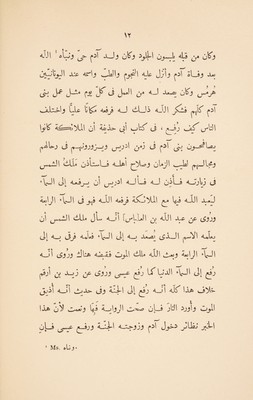 ١٢
وكان من قبله يلبسون الجلود وكان ولد آدم حىّ ونبّاه¹ اللّه
بعد وفاة آدم وأنزل عليه النجوم والطبّ واسمه عند اليونانيّين
هرمس وكان يصعد له من العمل فى كلّ يوم مثل عمل بنى
آدم كلّهم فشكر اللّه ذلك له فرفعه مكانًا عليًّا واختلف
الناس كيف رُفع، فى كتاب أبى حذيفة أن الملائكة كانوا
يصافحون بنى آدم فى زمن ادريس ويزورونهم فى رحالهم
ومجالسهم لطيب الزمان وصلاح أهله فاستأذن ملك الشمس
فى زيارته فأذن له فسأله ادريس أن يرفعه إلى السمآء
ليعبد اللّه فيها مع الملائكة فرفعه اللّه فهو فى الرابعة
ورُوى عن عبد اللّه بن العبّاس أنّه سأل ملك الشمس أن
يعلّمه الاسم الذى يُصعد به إلى السمآء فعلّمه فرقى به إلى
السمآء الرابعة وبعث اللّه ملك الموت فقبضه هناك ورُوى أنّه
رُفع إلى السمآء الدنيا كما رُفع عيسى ورُوى عن زيد بن أرقم
خلاف هذا كلّه أنّه رُفع إلى الجنّة وفى حديث أنّه أذيق
الموت وأورد النار فإن صحّت الرواية فيها ونعمت لأنّ هذا
الخبر نظائر دخول آدم وزوجته الجنّة ورفع عيسى فإن
¹ Ms. ونباه.